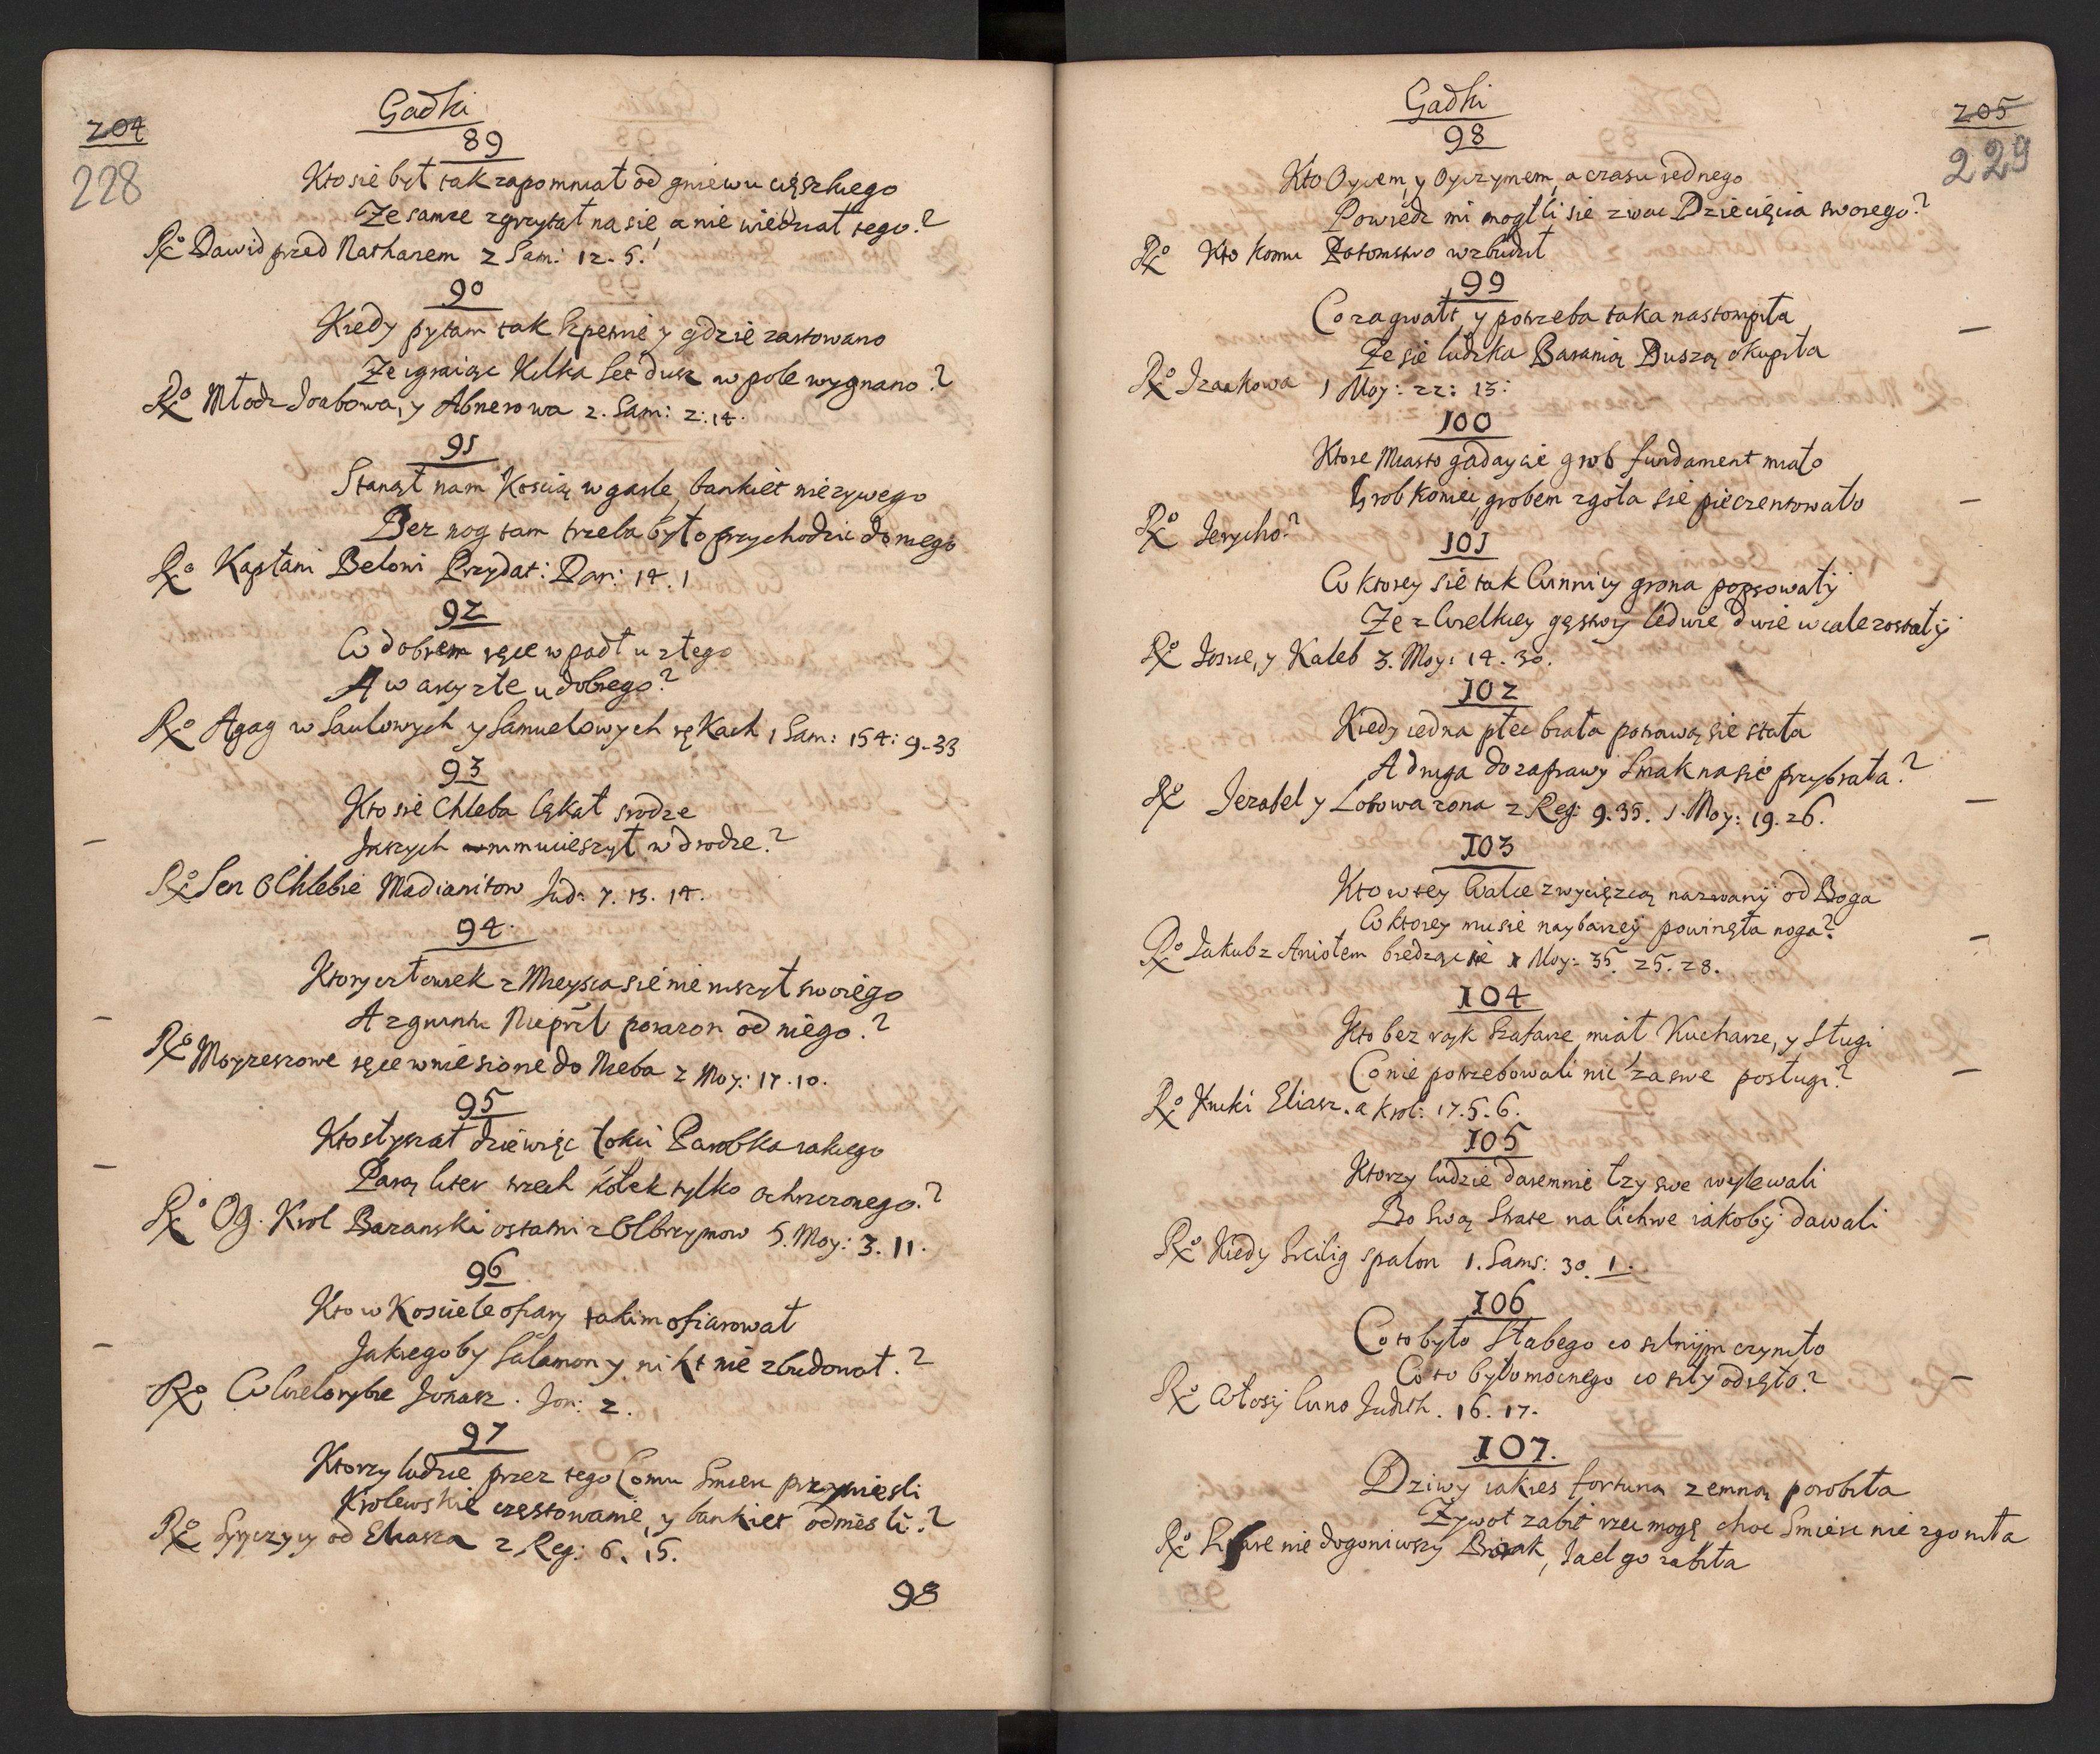 204
228
Gadki
89
Kto sie był tak zapomniał od gniewu cięszkiego
Ze samze zgrzytał na się, a nie wiedział tego?
Rx Dawid przed Nathanem 2 Sam: 12. 5.
90
Kiedy pytam tak szpetnie y gdzie zartowano
Ze igraiąc Kilka set dusz w pole wygnano?
Rx Młodz Joabowa, y Abnerowa 2. Sam: 2: 14.
91
Stanął nam Kością w garle, bankiet nieżywego
Bez nog tam trzeba było przychodzic do niego
Rx Kapłani Belowi Przydat: Dan: 14. 1
92
W dobrem ręce wpadł u złego
A w zle u dobrego?
Rx Agag w Saulowych y Samuelowych rękach 1 Sam: 15 4: 9. 33
93
Kto sie Chleba lękał srodze
Inszych nim mucieszył w drodze?
Rx Sen o Chlebie Madianitow Jud: 7. 13. 14.
94.
Ktory człowiek z Mieysca sie nie ruszył swoiego
A z gruntu Nieprzl porazon od niego?
Rx Moyzeszowe ręce wniesione do Nieba 2 Moy: 17. 10.
95
Kto słyszał dziewięc łokci Parobka takiego
Parą liter trzech kołek tylko ochrzczonego?
Rx Og. Krol Bazanski ostatni z Olbrzymow 5. Moy: 3. 11.
96
Kto w Kosciele ofiary takim ofiarował
Jakiegoby Salamon y nikt nie zbudował?
Rx W Wielorybie Jonasz. Jon: 2.
97
Ktorzy ludzie przez tego Comu Smierc przyniesli
Krolewskie częstowanie, y bankiet odniesli?
Rx Syryczycy od Eliasza 2 Reg: 6. 15.
98
205
229
Gadki
98
Kto Oycem, y Oyczymem, a czasu iednego
Powiedz mi mogłli sie zwac Dziecięcia swoiego?
Rx Kto komu Potomstwo wzbudził
99
Co za gwałt, y potrzeba taka nastompiła
Ze sie ludzka Baranią Duszą okupiła
Rx Izaakowa 1 Moy: 22: 13:
100
Ktore Miasto gadaycie grob fundament miało
Grob koniec, grobem zgoła sie pieczentowało
Rx Jerycho?
101
W ktorey sie tak Winnicy grona popsowały
Ze z Wielkiey gęstwy ledwie dwie w cale zostały
Rx Jozue, y Kaleb 3. Moy: 14. 30.
102
Kiedy iedna płec biała potrawą sie stała
A druga do zaprawy Smak na sie przybrała?
Rx Jezabel y Lotowa zona 2 Reg: 9. 35. 1. Moy: 19. 26.
103
Kto w tey Walce zwycięzcą nazwany od Boga
W ktorey mu sie naybarzey powinęła noga?
Rx Jakub z Aniołem biedząc sie 1 Moy: 35. 25. 28.
104
Kto bez rąk Szafarze, miał Kucharze, y Sługi
Co nie potrzebowali nic za swe posługi?
Rx Kruki Eliasz. a Krol: 17. 5. 6.
105
Ktorzy ludzie daremnie łzy swe wylewali
Bo swą Strate na lichwe iakoby dawali
Rx Kiedy Sicilig spalon 1. Sam: 30. 1.
106
Co to było Słabego co silnym czyniło
Co to było mocnego co siły odięło?
Rx Włosy Wino Judith. 16. 17.
107.
Dziwy iakies fortuna zemną porobiła
Zywot zabił rzec mogę choc Smierc nie zgoniła
Rx nie dogoniwszy Barak, Jael go zabiła